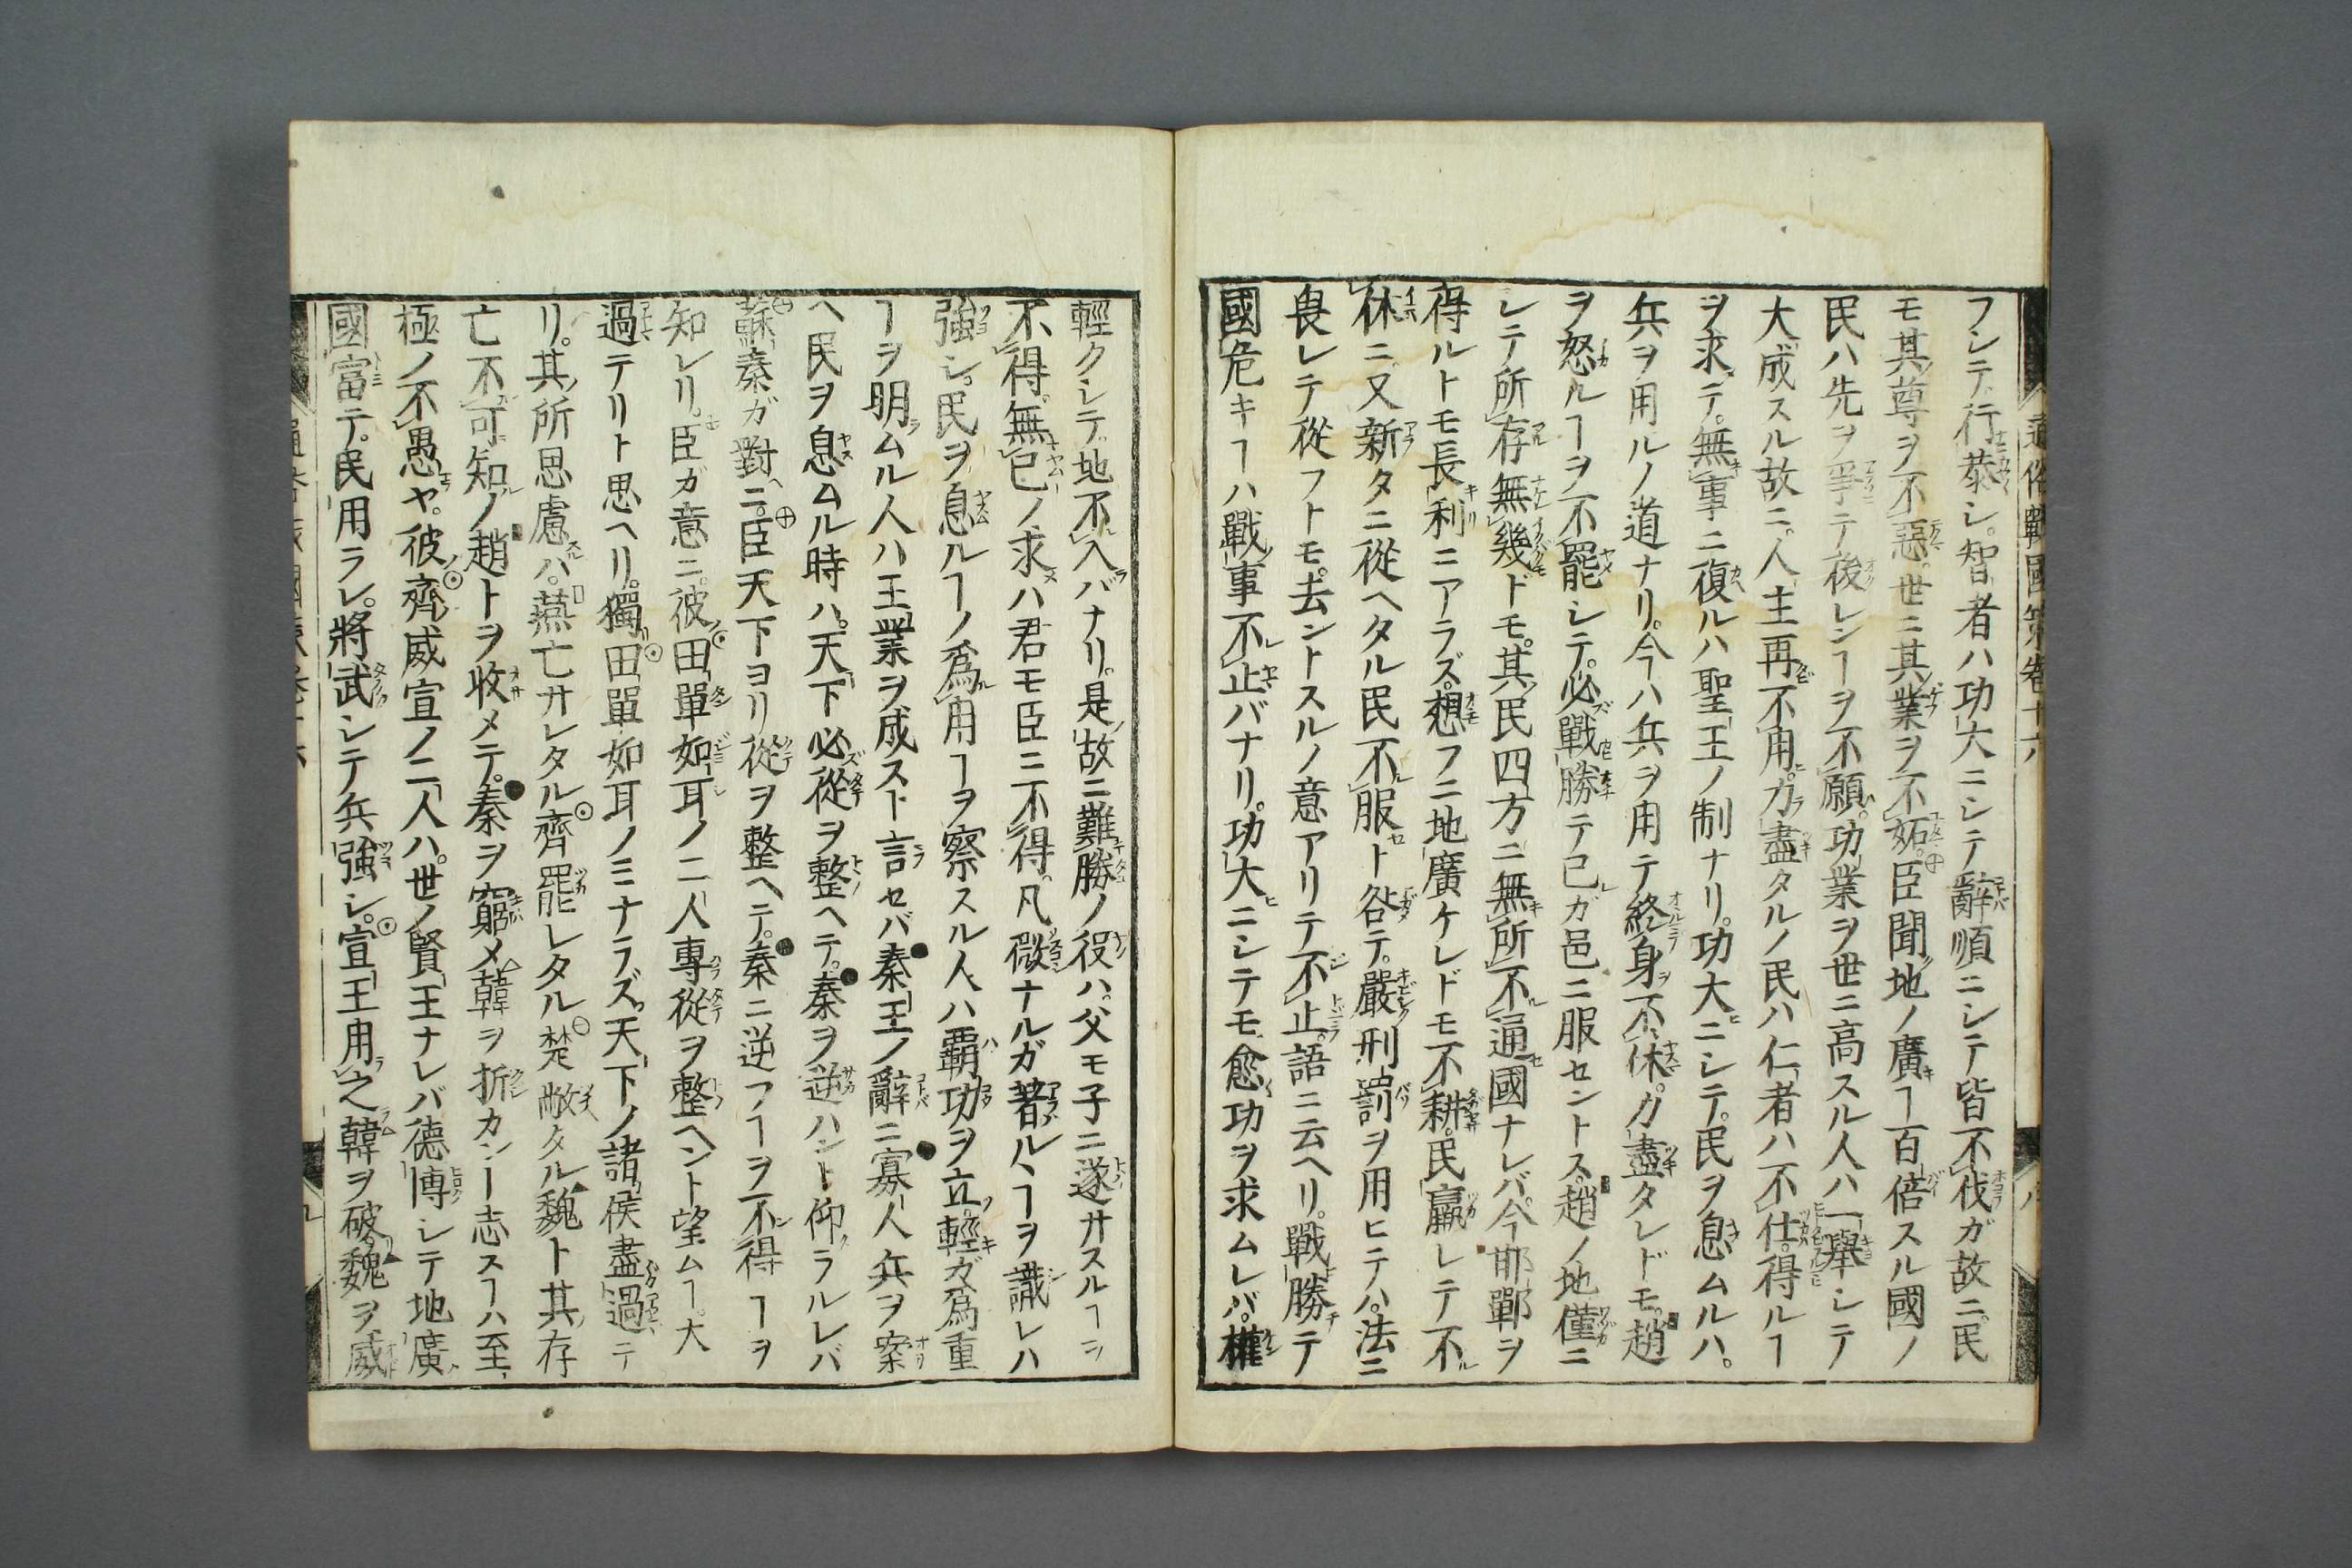 通俗戰國策卷十六
フシテ行恭シ。智者ハ功大ニシテ辭順ニシテ皆不伐ガ故ニ民
モ其尊ヲ不惡。世ニ其業ヲ不妬。臣聞地ノ廣ヿ百倍スル國ノ
民ハ先ヲ爭テ後レンヿヲ不願。功業ヲ世ニ高スル人ハ一擧シテ
大成スル故ニ人主再不用。力盡タルノ民ハ仁者ハ不仕。得ルヿ
ヲ求テ。無事ニ復ルハ聖王ノ制ナリ。功大ニシテ。民ヲ息ムルハ。
兵ヲ用ルノ道ナリ。今ハ兵ヲ用テ終身不休。力盡タレドモ。趙
ヲ怒ルヿヲ不罷シテ。必戰勝テ己ガ邑ニ服セントス。趙ノ地僅ニ
レテ所存無幾ドモ。其民四方ニ無所不通國ナレバ。今邯鄲ヲ
得ルトモ長利ニアラズ。想フニ地廣ケレドモ不耕。民羸レテ不
休ニ又新タニ從ヘタル民不服ト咎テ。嚴刑罰ヲ用ヒテハ。法ニ
畏レテ從フトモ。去ントスルノ意アリテ不止。語ニ云ヘリ。戰勝テ
國危キヿハ戰事不止バナリ。功大ニシテモ愈功ヲ求ムレバ。權
輕クシテ地不入バナリ。是故ニ難勝ノ役ハ。父モ子ニ遂サスルヿヲ
不得。無已ノ求ハ君モ臣ニ不得。凡微ナルガ著ルヽヿヲ識レハ
強シ。民ヲ息ルヿノ爲用ヿヲ察スル人ハ覇功ヲ立。輕ガ爲重
ヿヲ明ムル人ハ王業ヲ成スト言セバ秦王ノ辭ニ寡人兵ヲ案
ヘ民ヲ息ムル時ハ。天下必從ヲ整ヘテ。秦ヲ逆ハント仰ラルレバ
蘇秦ガ對ニ。臣天下ヨリ從ヲ整ヘテ。秦ニ逆フヿヲ不得ヿヲ
知レリ。臣ガ意ニ。彼田單如耳ノ二人專從ヲ整ヘント望ムヿ。大
過テリト思ヘリ。獨田單如耳ノミナラズ。天下ノ諸侯盡過テ
リ。其所思慮ハ。燕亡サレタル齊罷レタル楚敝タル魏ト其存
亡不可知ノ趙トヲ收メテ。秦ヲ窮メ韓ヲ折カンヿ志スヿハ至
極ノ不愚ヤ。彼齊威宣ノ二人ハ。世ノ賢王ナレバ德博シテ地廣
國富テ。民用ラレ。將武シテ兵強シ。宣王用之韓ヲ破。魏ヲ威